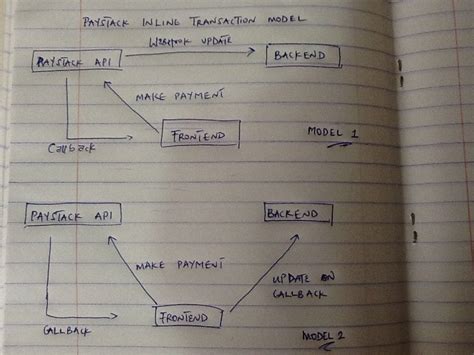 PAYSTACK INLINE TRANSACTION MODEL
WEBHOOK UPDATE
PAYSTACK API
BACKEND
MAKE PAYMENT
FRONTEND
Callback
MODEL 1
PAYSTACK API
BACKEND
MAKE PAYMENT
UPDATE ON
CALLBACK
FRONTEND
CALLBACK
MODEL 2